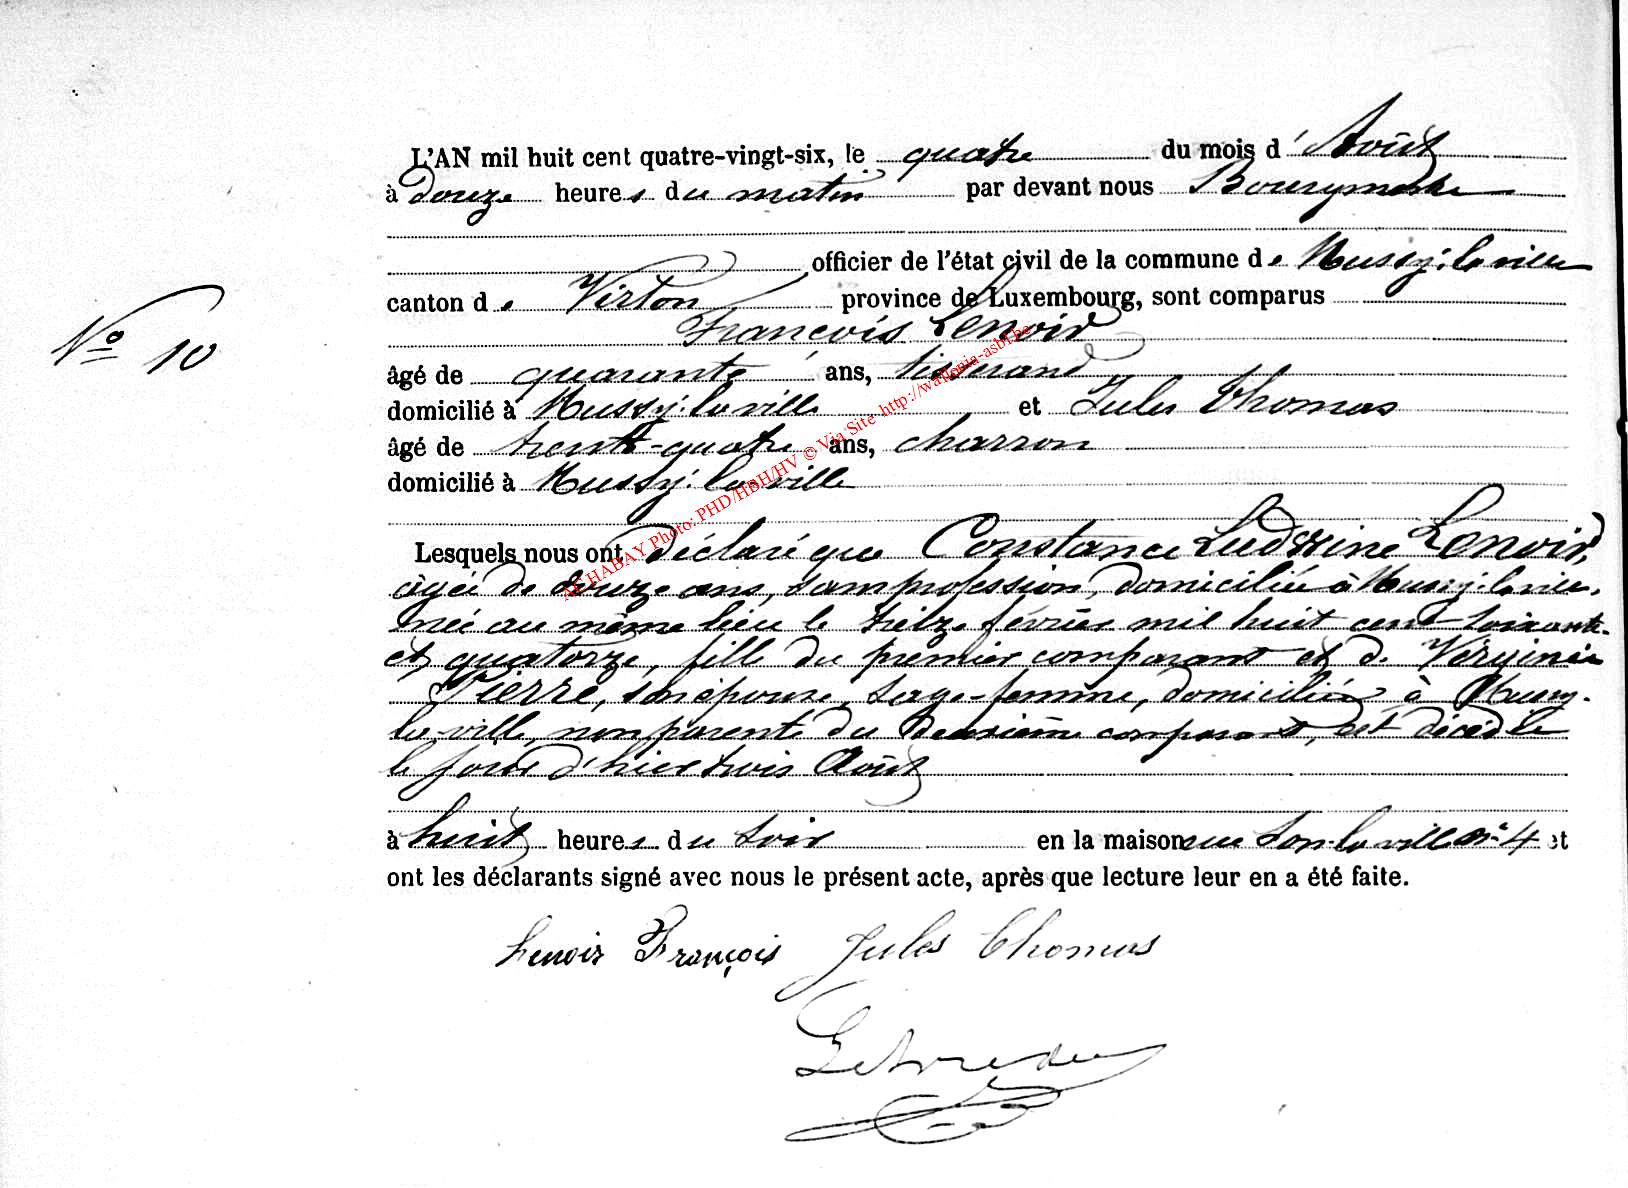 L'AN mil huit cent quatre-vingt-six, le quatre du mois d'Août
à douze heures du matin par devant nous Bourgmestre
officier de l'état civil de la commune de Mussy-la-ville
canton de Virton province de Luxembourg, sont comparus
François Lenoir
N° 10
âgé de quarante ans, tisserand
domicilié à Mussy-la-ville et Jules Thomas
âgé de trente-quatre ans, charron
domicilié à Mussy-la-ville
ACHABAY Photo: PHD/HBH/HV © Via Site http://wallonia-asbl.be
Lesquels nous ont déclaré que Constance Lenoir,
âgée de douze ans, sans profession, domiciliée à Mussy-la-ville,
née au même lieu le février mil huit cent soixante-
et quatorze, fille du premier comparant et de Virginie
Pierre, son épouse, sage-femme, domiciliée à Mussy-
la-ville, non parente du deuxième comparant, est décédée
le jour d'hier trois Août
à huit heures du soir en la maison rue la ville n° 4 et
ont les déclarants signé avec nous le présent acte, après que lecture leur en a été faite.
Lenoir François Jules Thomas